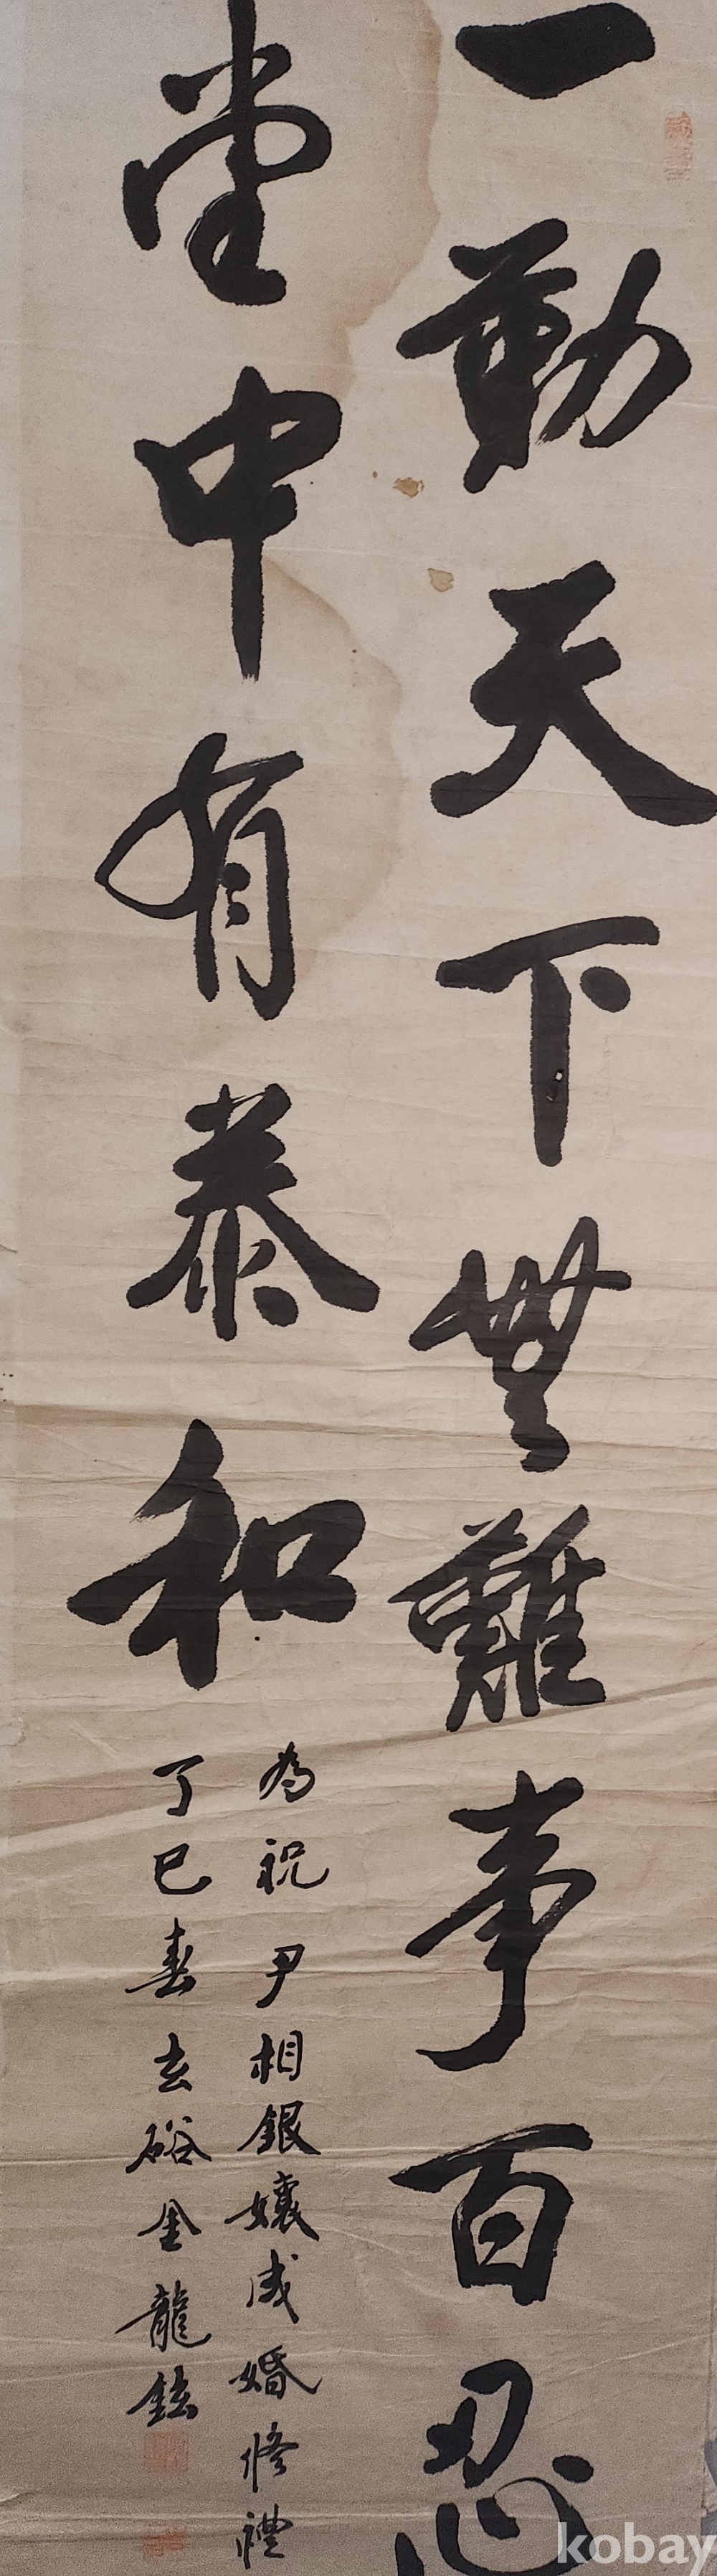 一勤天下無難事百忍
堂中有泰和
為祝尹相銀孃成婚修禮
丁巳春玄硲金龍鉉
kobay